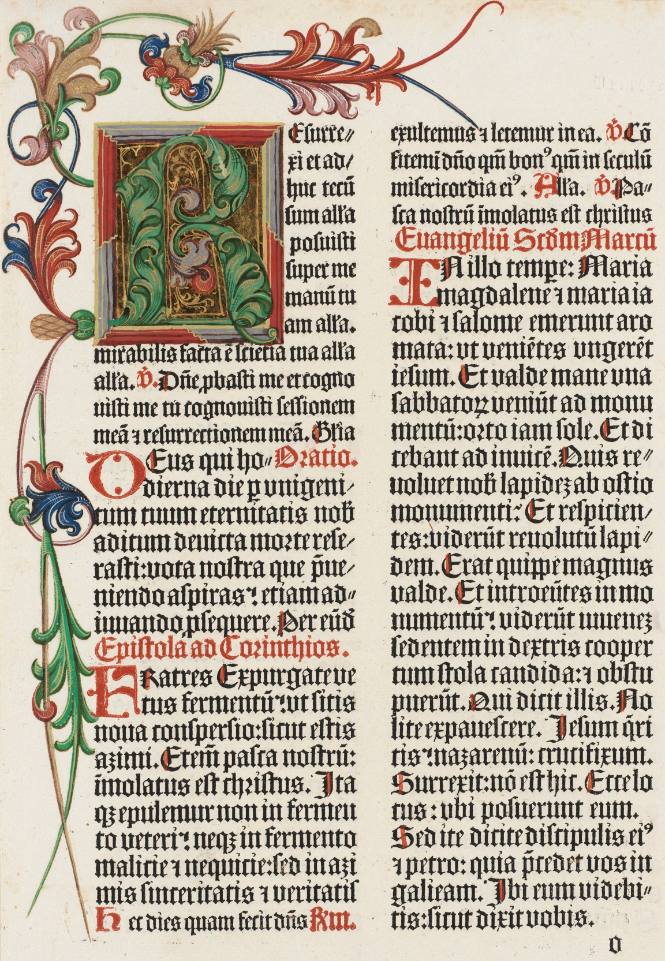 Resurre⸗
xi et ad⸗
huc tecū
sum all'a
posuisti
super me
manū tu
am all'a.
mirabilis facta ē scīetia tua all'a
all'a. v̄. Dn̄e ꝓbasti me et cogno
uisti me tu cognouisti sessionem
meā ⁊ resurrectionem meā. Gl'ia
DEus qui ho⸗ Oratio.
dierna die ꝑ vnigeni⸗
tum tuum eternitatis nob̄
aditum deuicta morte rese⸗
rasti: vota nostra que p̄ue⸗
niendo aspiras ⁊ etiam ad⸗
iuuando ꝓsequere. Per eūd̄
Epistola ad Corinthios.
FRatres Expurgate ve
tus fermentū: vt sitis
noua conspersio: sicut estis
azimi. Etem̄ pasca nostrū:
īmolatus est christus. Ita
qꝫ epulemur non in fermen
to veteri: neqꝫ in fermento
malicie ⁊ nequicie: sed in azi
mis sinceritatis ⁊ veritatis
Hec dies quam fecit dn̄s Rm.
exultemus ⁊ letemur in ea. v̄. Cō
fitemi dn̄o qm̄ bonꝰ qm̄ in seculū
misericordia eiꝰ. All'a. v̄. Pa⸗
sca nostrū īmolatus est christus
Euangeliū Scd̄m Marcū
IN illo tempe: Maria
magdalene ⁊ maria ia
cobi ⁊ salome emerunt aro
mata: vt veniētes vngerēt
iesum. Et valde mane vna
sabbatoꝝ veniūt ad monu
mentū: orto iam sole. Et di
cebant ad inuicē. Quis re⸗
voluet nob̄ lapidēꝫ ab ostio
monumenti: Et respicien⸗
tes: viderūt reuolutū lapi⸗
dem. Erat quippe magnus
valde. Et introeūtes in mo
numentū: viderūt iuueneꝫ
sedentem in dextris cooper
tum stola candida: ⁊ obstu
puerūt. Qui dicit illis. No
lite expauescere. Iesum q̄ri
tis nazarenū: crucifixum.
Surrexit: nō est hic. Ecce lo
cus: vbi posuerunt eum.
Sed ite dicite discipulis eiꝰ
⁊ petro: quia p̄cedet vos in
galieam. Ibi eum videbi⸗
tis: sicut dixit vobis.
o